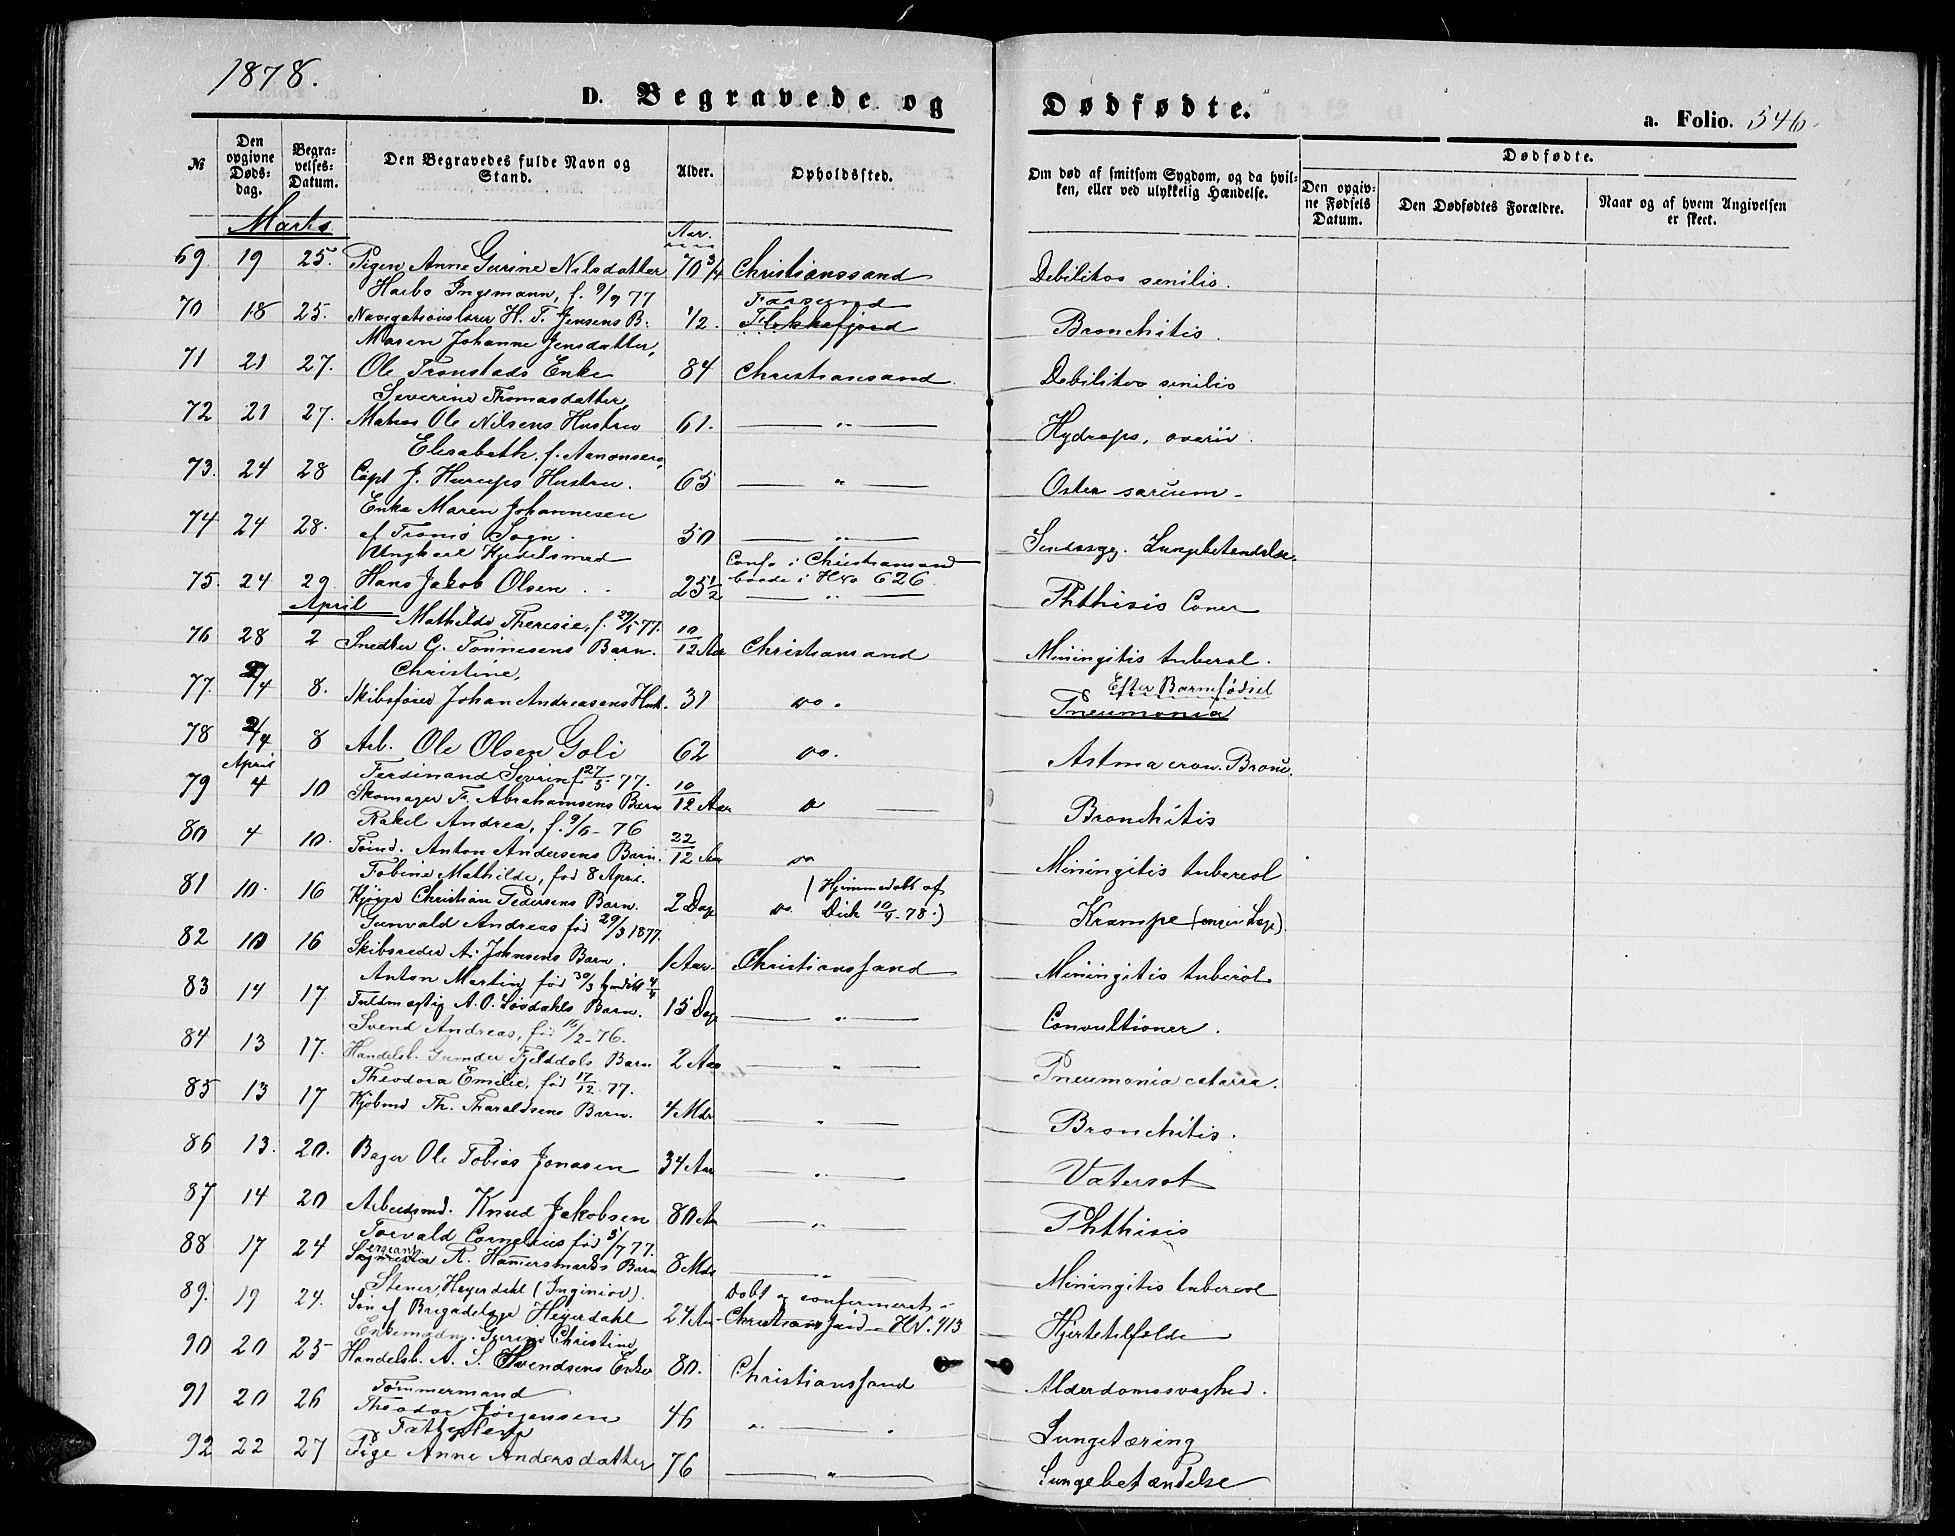 1878.
D. Begravede og Dødfødte.
a. Folio. 346.
№
Den opgivne Døds-dag.
Begra-velses-Datum.
Den Begravedes fulde Navn og Stand.
Alder.
Opholdssted.
Om død af smitsom Sygdom, og da hvil-ken, eller ved ulykkelig Hændelse.
Dødfødte.
Den opgiv-ne Fødsels Datum.
Den Dødfødtes Forældre.
Naar og af hvem Angivelsen er skeet.
Marts
Aar.
69 19 25. Pigen Anne Gurine Nilsdatter 70 3/4 Christianssand Debilitas senilis.
Harbo Ingemann, f. 9/9 77 Farsund
70 18 25. Navigationslærer H. T. Jensens B: 1/2. Flekkefjord Bronchitis
Maren Johanne Jensdatter,
71 21 27. Ole Tronstads Enke 84 Christiansand. Debilitas senilis
Severine Thomasdatter,
72 21 27. Matros Ole Nilsens Hustru 61. — " — Hydrops, ovarii.
Elisabeth, f. Aanonsen,
73. 24 28 Capt J. Hurups Hustru. 65 — " —
Enke Maren Johannesen
74 24 28. af Tromø Sogn. 50 — " — Lungebetændelse
Ungkarl Kjedelsmed Conf. i Christiansand
75. 24 29. Hans Jakob Olsen 25 1/2 boede i HNo 626. Phthisis
April
Mathilde Theresie, f. 29/5 77.
76 28 2 Snedker C. Tønnesens Barn. 10/12 Aar Christiansand Miningitis tubercol.
Christine, Efter Barnefødsel
77. 2/4 8. Skibsfører Johan Andreasens Hust. 31 do. Pneumonia
78 2/4 8 Arb. Ole Olsen Goli 62 do. Astma
April
Ferdinand Severin f 27/5 77.
79 4 10 Skomager F. Abrahamsens Barn 10/12 Aar do — Bronchitis
Rakel Andrea, f. 9/6 - 76
80 4 10. Anton Andersens Barn. 22/12 Aar do Miningitis tubercol
Tobine Mathilde, fød 8 April. (Hjemmedøbt af
81 10. 16 Christian Pedersens Barn. 2 Dage do. 10/4 - 78.) Krampe (ingen Læge).
Gunvald Andreas fød 29/3 1877.
82 10 16 Skibsreder A. Johnsens Barn. 1 Aar. Christianssand Miningitis tubercol.
Anton Martin, fød 30/3 hjmdøbt 4/4
83 14 17 Fuldmægtig A. O. Løvdahls Barn. 15 Dage — " — Convultioner.
Svend Andreas, fød 16/2 - 76.
84 13 17. Handelsb. Gunder Fjelddals Barn 2 Aar — " — Pneumonia catarra.
Theodora Emilie, fød 17/12 - 77.
85 13 17 Kjøbmd Th. Tharaldsens Barn. 4 Mdr — " — Bronchitis.
86 13. 20. Bager Ole Tobias Jonasen 34 Aar — " — Vatersot
87 14 20 Arbeidsmd. Knud Jakobsen 80 Aar — " — Phthisis
Torvald Cornelius fød 5/7 77.
88 17 24 Sergeant R. Hammersmarks Barn 8 Mdr — " — Miningitis tubercol
Stener Heyerdahl (Inginiør). Døbt og confirmeret i
89. 19 24. Søn af Brigadelæge Heyerdahl 24 Aar Christianssand - HN. 413 Hjertetilfælde
Enkemadm. Gurine Christine
90 20 25 Handelsb. A. S. Svendsens Enke 80. Christianssand Alderdomssvaghed.
Tømmermand
91 20 26 Theodor Jørgensen 46 " — " Lungetæring
Fattiglem
92 22 27 Pige Anne Andersdatter 76 — " — Lungebetændelse